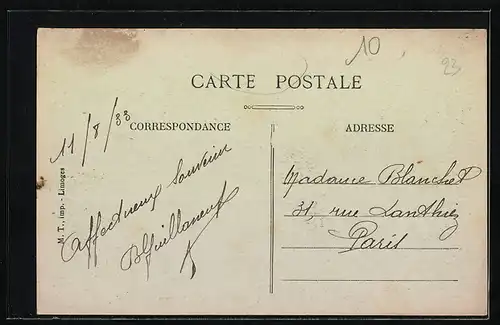 10
23
CARTE POSTALE
CORRESPONDANCE
ADRESSE
11/8/33
Affectueux Souvenir
Madame Blanchet
31, rue
Paris
M. T., imp. - Limoges